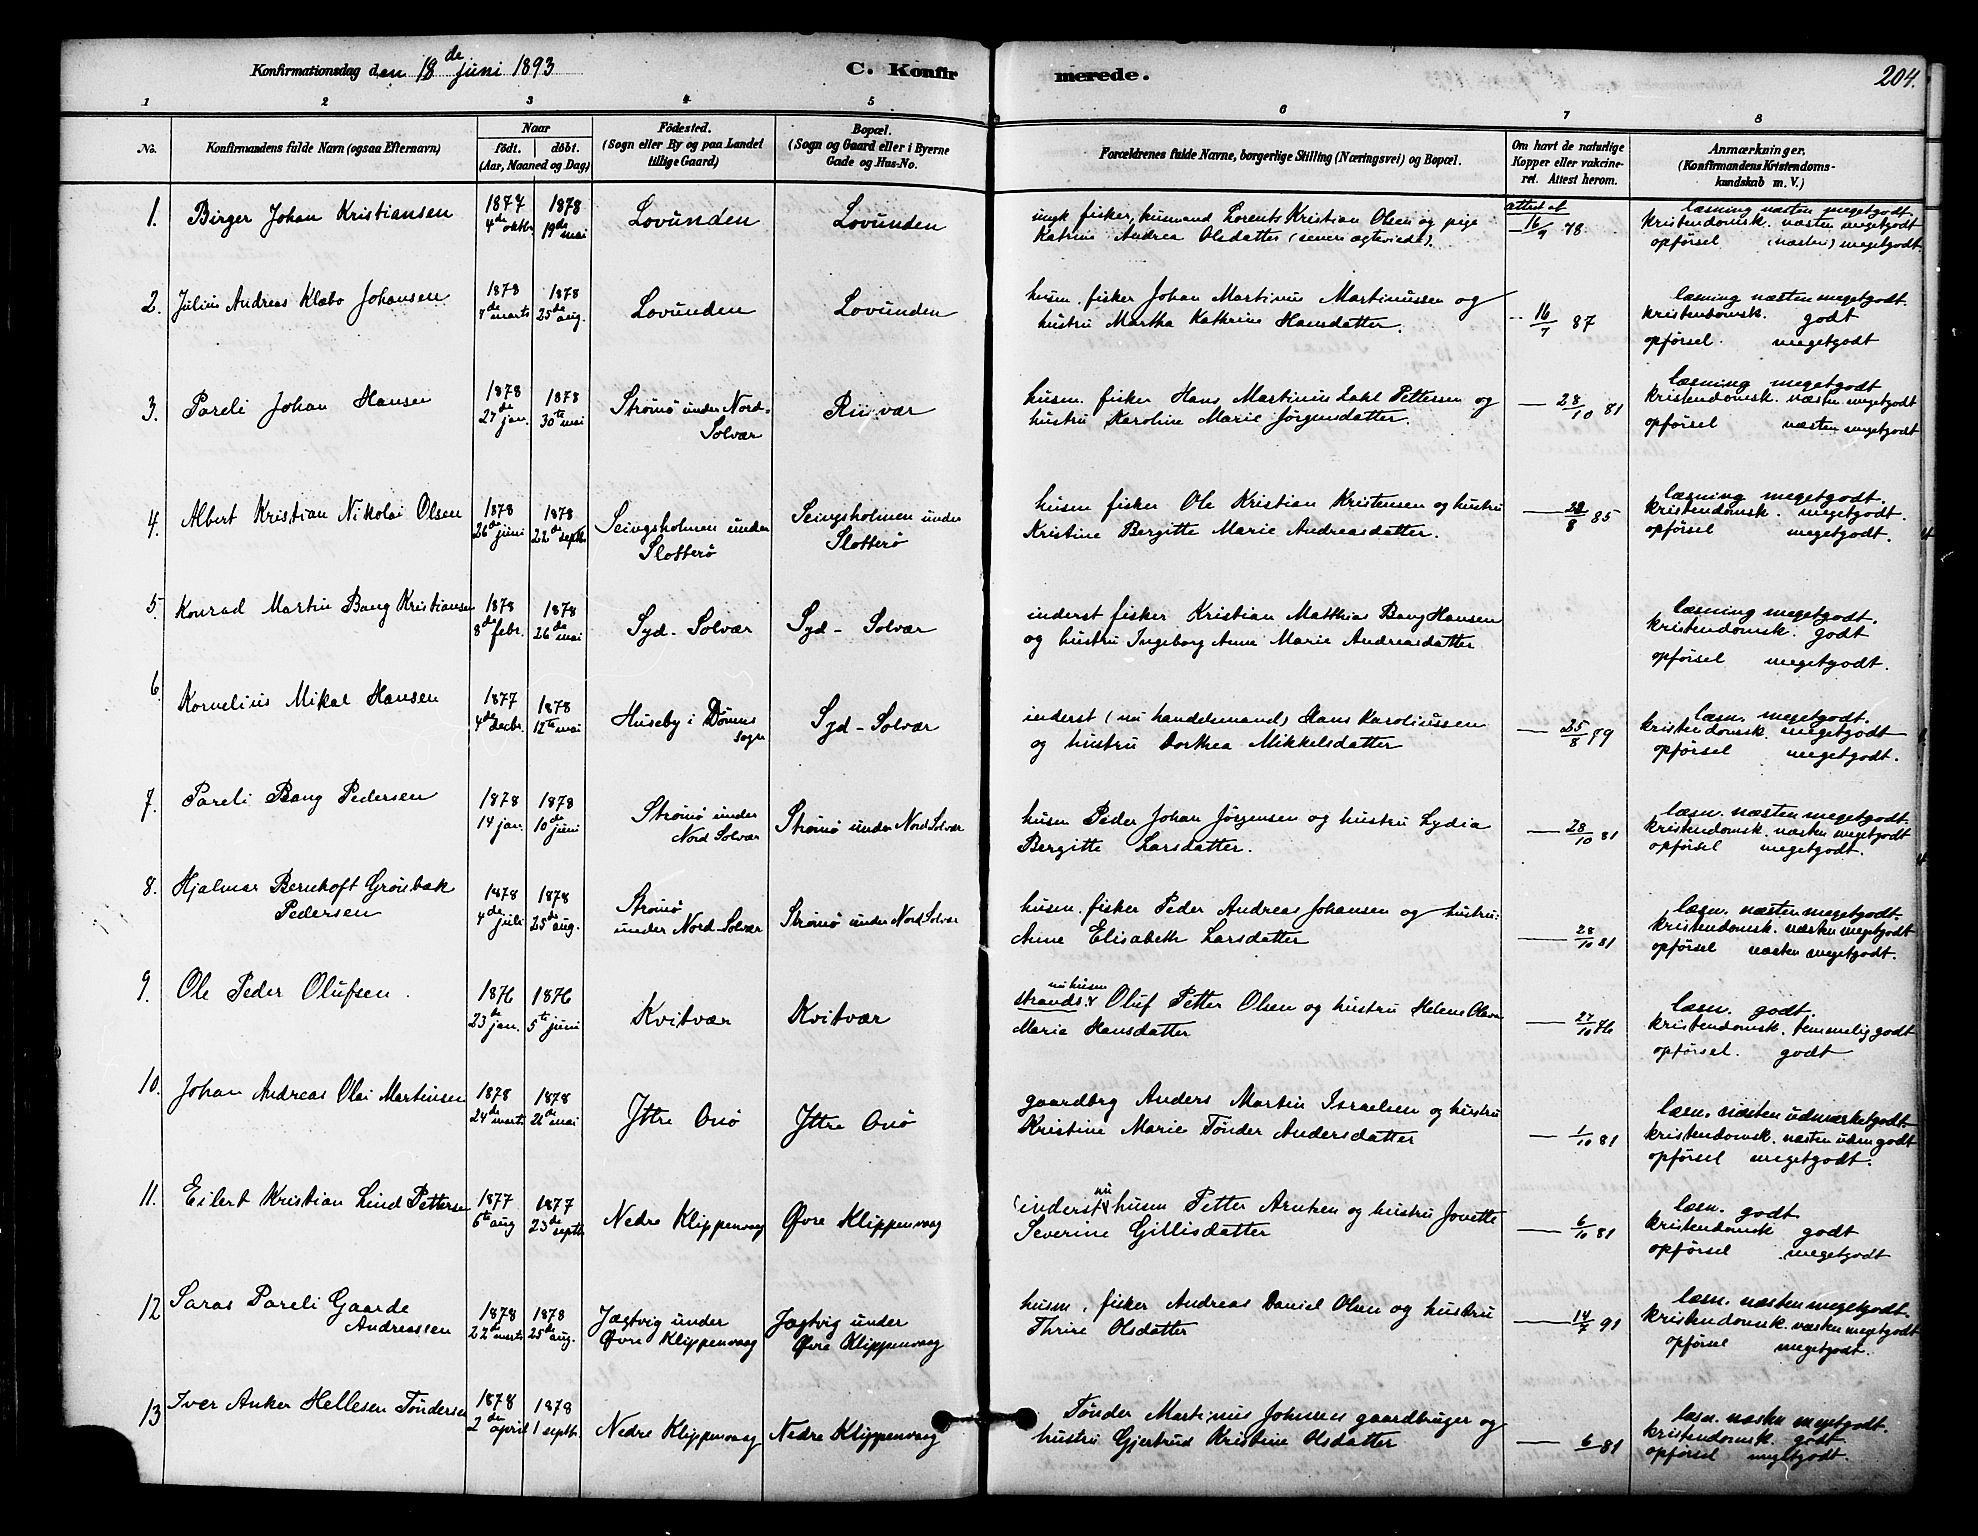 Konfirmationsdag den 18de Juni 1893 C. Konfirmerede. 204.
1 2 3 4 5 6 7 8
No. Konfirmandens fulde Navn (ogsaa Efternavn) Naar födt. döbt. (Aar, Maaned og Dag) Födested. (Sogn eller By og paa Landet tillige Gaard) Bopæl. (Sogn og Gaard eller i Byerne Gade og Hus-No. Forældrenes fulde Navne, borgerlige Stilling (Næringsvei) og Bopæl. Om havt de naturlige Kopper eller vakcineret. Attest herom. Anmærkninger. (Konfirmandens Kristendomskundskab m. V.)
1. Birger Johan Kristiansen 1877 4de oktbr 1878 19de mai Lovunden Lovunden ungk fisker, husmand Lorents Kristian Olsen og pige attest af 16/9 78 læsning næsten megetgodt.
Katrine Andrea Olsdatter (senere ægteviede). kristendomsk. næsten megetgodt
opførsel (næsten) megetgodt.
2. Julius Andreas Klæbo Johansen 1878 7de marts 1878 25de aug. Lovunden Lovunden husm. fisker Johan Martinus Martinussen og 16/7 87 læsning næsten megetgodt.
hustru Martha Kathrine Hansdatter. kristendomsk. godt
opførsel. megetgodt
3. Pareli Johan Hansen 1878 27de jan. 1878 30te mai Strømø under Nord-Solvær Rusvær husm. fisker Hans Martinus Dahl Pettersen og 28/10 81 læsning megetgodt
hustru Karoline Marie Jørgensdatter. kristendomsk. næsten megetgodt
opførsel næsten megetgodt
4. Albert Kristian Nikolai Olsen 1878 26de juni 1878 22de septb. Seingsholmen under Slotterø Seingsholmen under Slotterø husm fisker Ole Kristian Kristensen og hustru 28/8 85 læsning megetgodt.
Kristine Bergitte Marie Andreasdatter. kristendomsk. megetgodt.
opførsel megetgodt.
5. Konrad Martin Bang Kristiansen 1878 8de febr. 1878 26de mai Syd-Solvær Syd-Solvær inderst fisker Kristian Matthias Bang Hansen læsning megetgodt.
og hustru Ingeborg Anne Marie Andreasdatter kristendomsk. godt
opførsel megetgodt.
6. Kornelius Mikal Hansen 1877 4de decbr. 1878 12te mai Huseby i Dønnes sogn Syd-Solvær inderst (nu handelsmand) Hans Karoliussen 25/8 79 læsn. megetgodt.
og hustru Dorthea Mikkelsdatter kristendomsk. megetgodt
opførsel megetgodt.
7. Pareli Bang Pedersen 1878 14 jan. 1878 10de juni Strømø under Nord Solvær Strømø under Nord Solvær husm Peder Johan Jørgensen og hustru Lydia 28/10 81 læsn. næsten megetgodt.
Bergitte Larsdatter. kristendomsk. næsten megetgodt
opførsel megetgodt.
8. Hjalmar Bernhoft Grønbæk Pedersen 1878 4de juli 1878 25de aug. Strømø under Nord-Solvær Strømø under Nord Solvær husm. fisker Peder Andreas Johansen og hustru 28/10 81 læsn. næsten megetgodt.
Anne Elisabeth Larsdatter kristendomsk. næsten megetgodt
opførsel næsten megetgodt.
9. Ole Peder Olufsen. 1876 23de jan. 1876 5te juni Kvitvær Kvitvær nu husm strands. Oluf Petter Olsen og hustru Helene Olava 27/10 76 læsn. godt.
Marie Hansdatter kristendomsk. temmelig godt
opførsel. godt
10. Johan Andreas Olai Martinsen 1878 24de marts 1878 26de mai Yttre Onø Yttre Onø gaardbrg Anders Martin Israelsen og hustru 1/10 81 læsn. næsten udmærketgodt.
Kristine Marie Tønder Andersdatter kristendomsk. næsten udm godt
opførsel megetgodt.
11. Eilert Kristian Lind Pettersen 1877 6te aug 1877 23de septb. Nedre Klippenvaag Øvre Klippenvaag (inderst) nu husm Petter Arntzen og hustru Jonette 6/10 81 læsn. godt
Severine Gillisdatter kristendomsk godt
opførsel megetgodt
12 Saras Pareli Gaarde Andreassen 1878 22de marts 1878 25de aug. Jægtvig under Øvre Klippenvaag Jægtvig under Øvre Klippenvaag husm, fisker Andreas Daniel Olsen og hustru 14/7 91 læsn. næsten megetgodt.
Thrine Olsdatter kristendomsk. næsten megetgodt
opførsel megetgodt.
13 Iver Anker Hellesen Töndersen 1878 2de april 1878 1 septb. Nedre Klippenvaag Nedre Klippenvaag Tønder Martinus Johnsen gaardbruger og 6/ 81 læsn. næsten megetgodt.
hustru Gjertrud Kristine Olsdatter kristendomsk. godt
opførsel megetgodt.